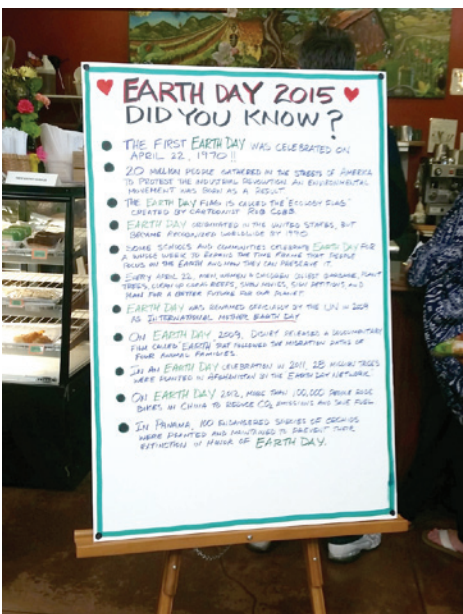 EARTH DAY 2015
DID YOU KNOW?
THE FIRST EARTH DAY WAS CELEBRATED ON
APRIL 22, 1970!!
20 MILLION PEOPLE GATHERED IN THE STREETS OF AMERICA
TO PROTEST THE INDUSTRIAL REVOLUTION. AN ENVIRONMENTAL
MOVEMENT WAS BORN AS A RESULT
THE EARTH DAY FLAG IS CALLED THE "ECOLOGY FLAG"
CREATED BY CARTOONIST RON COBB.
EARTH DAY ORIGINATED IN THE UNITED STATES, BUT
BECAME RECOGNIZED WORLDWIDE BY 1990
SOME SCHOOLS AND COMMUNITIES CELEBRATE EARTH DAY FOR
A WHOLE WEEK TO EXPAND THE TIME FRAME THAT PEOPLE
FOCUS ON THE EARTH AND HOW THEY CAN PRESERVE IT.
EVERY APRIL 22, MEN, WOMEN & CHILDREN COLLECT GARBAGE, PLANT
TREES, CLEAN UP CORAL REEFS, SHOW MOVIES, SIGN PETITIONS, AND
PLAN FOR A BETTER FUTURE FOR OUR PLANET
EARTH DAY WAS RENAMED OFFICIALLY BY THE UN IN 2009
AS INTERNATIONAL MOTHER EARTH DAY
ON EARTH DAY 2009, DISNEY RELEASED A DOCUMENTARY
FILM CALLED "EARTH" THAT FOLLOWED THE MIGRATION PATHS OF
FOUR ANIMAL FAMILIES.
IN AN EARTH DAY CELEBRATION IN 2011, 28 MILLION TREES
WERE PLANTED IN AFGHANISTAN BY THE EARTH DAY NETWORK
ON EARTH DAY 2012, MORE THAN 100,000 PEOPLE RODE
BIKES IN CHINA TO REDUCE CO2 EMISSIONS AND SAVE FUEL
IN PANAMA, 100 ENDANGERED SPECIES OF ORCHIDS
WERE PLANTED AND MAINTAINED TO PREVENT THEIR
EXTINCTION IN HONOR OF EARTH DAY.